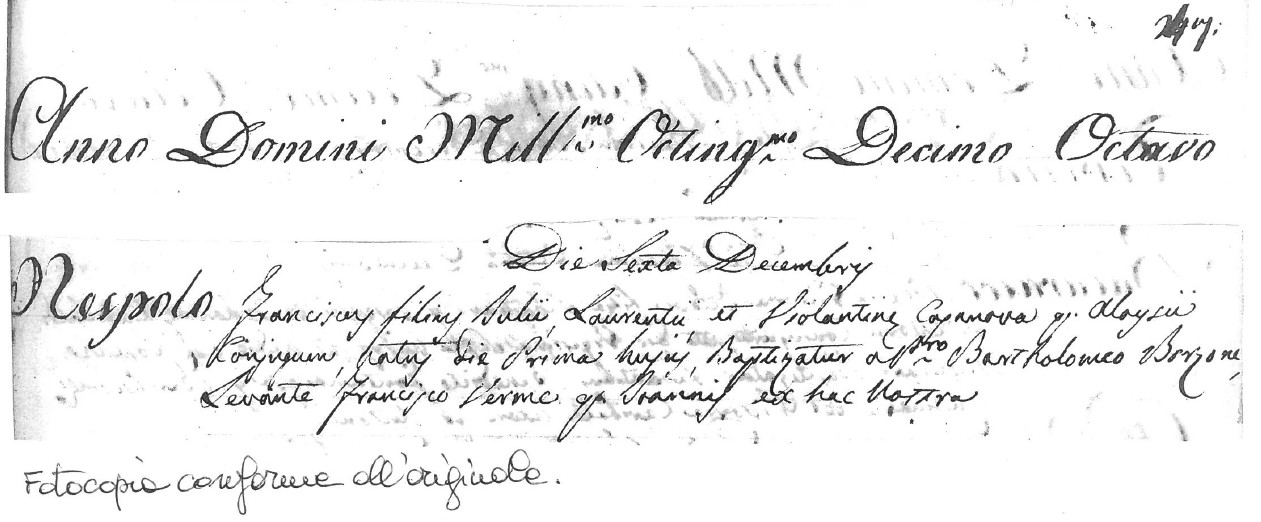 247.
Anno Domini Mill.mo Octing.mo Decimo Octavo
Die Sexta Decembris
Nespolo Franciscus filius Julii Laurentii, et Violantinę Casanova q. Aloysii
Conjugum, natus die Prima hujus, Baptizatur a Pbro Bartholomeo Borzone,
Levante Francisco Verme q. Joannis ex hac Nostra
Fotocopia conforme all'originale.